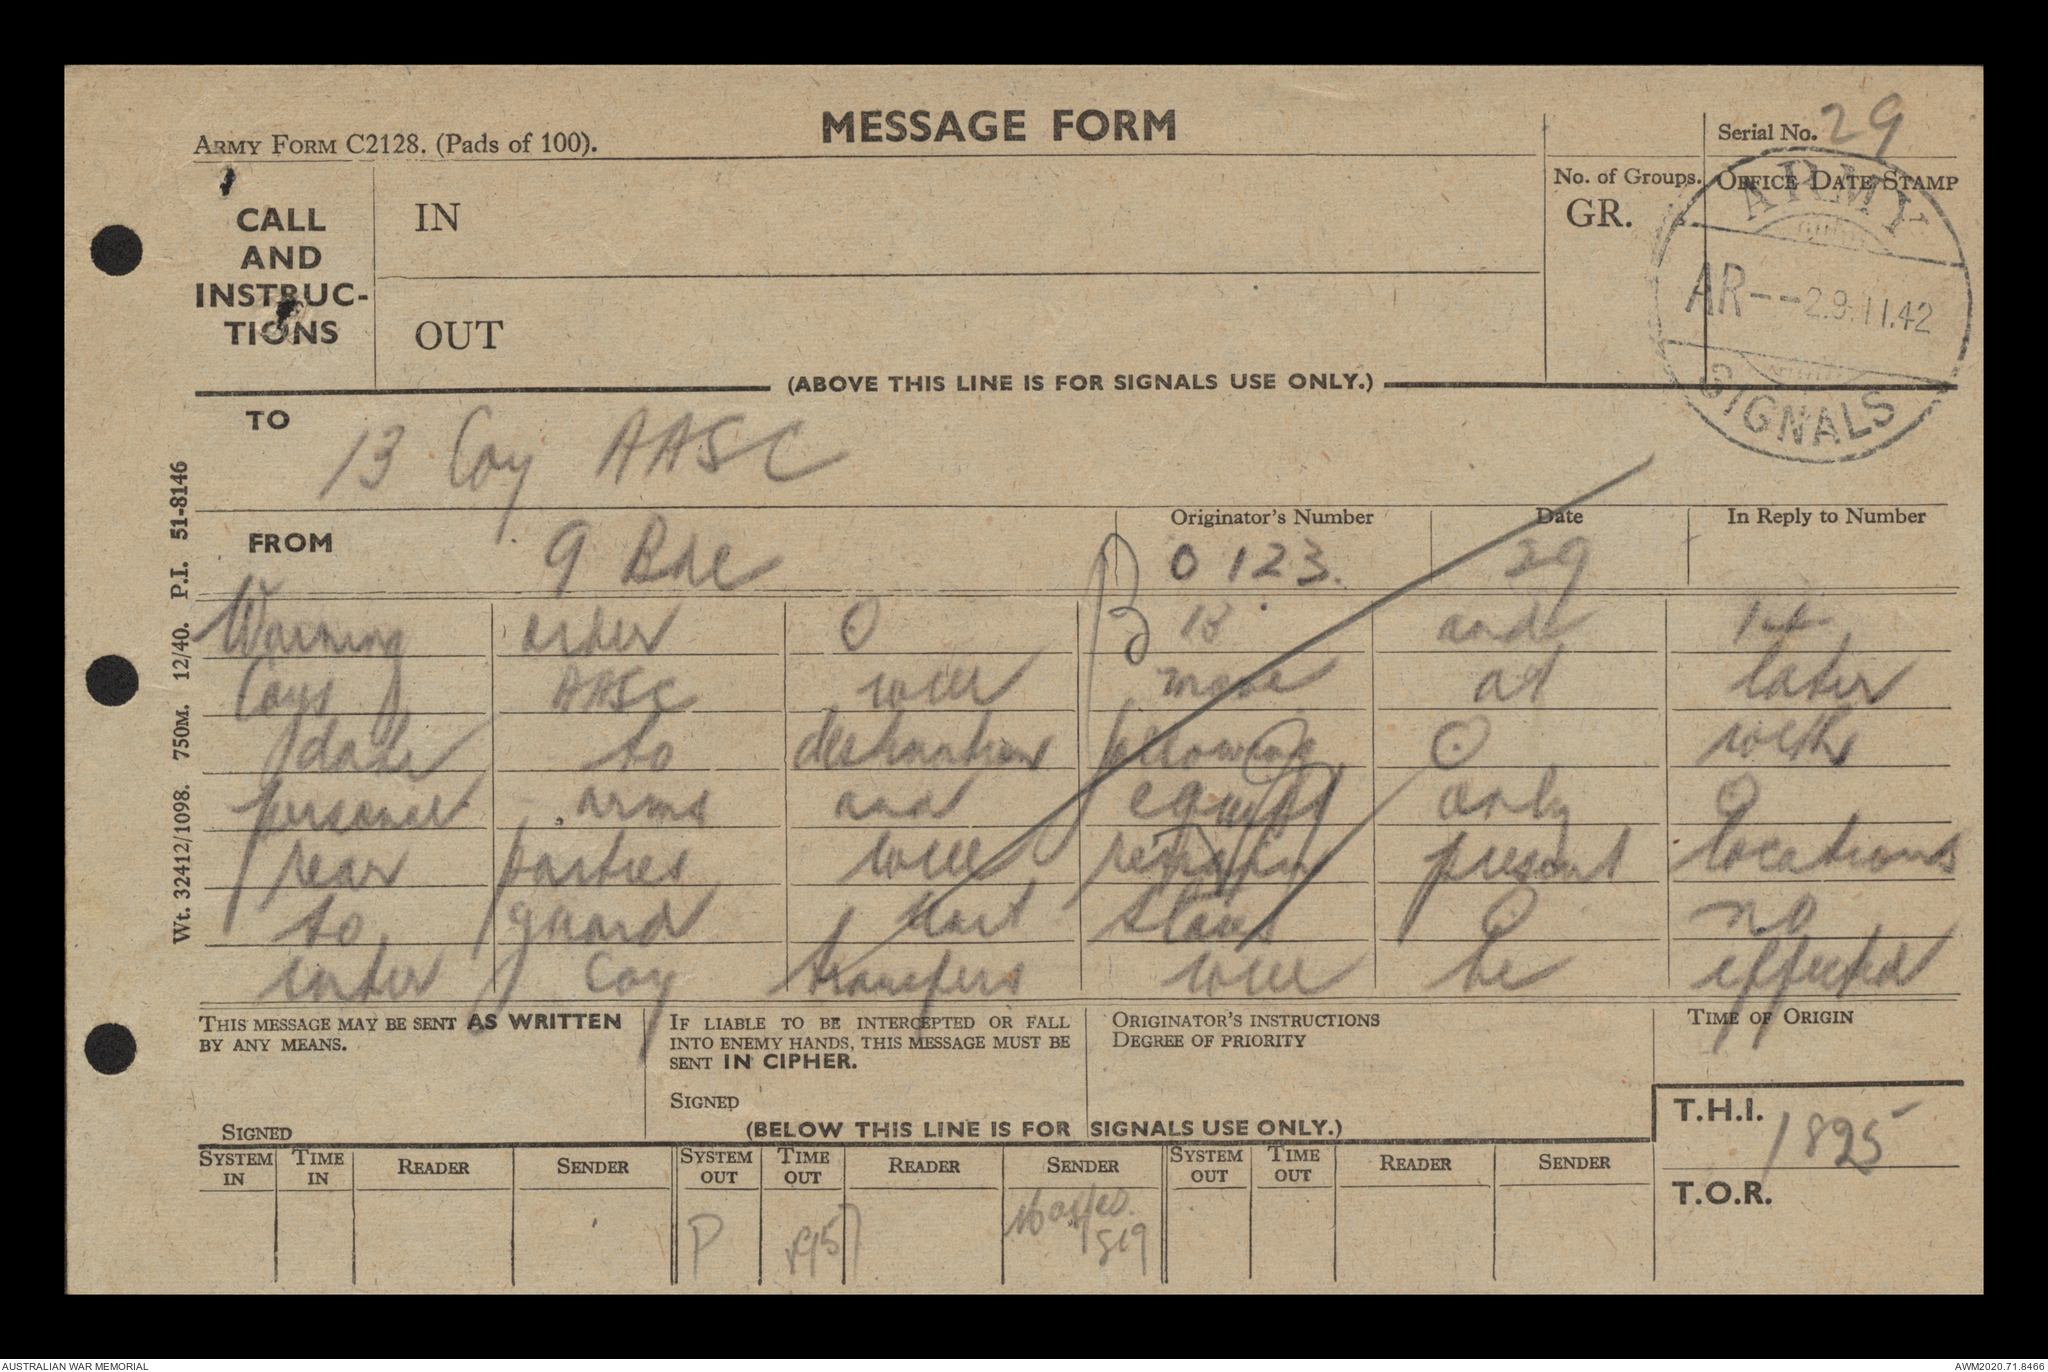 MESSAGE FORM
ARMY FORM C2128. (Pads of 100).
Serial No. 29
CALL AND INSTRUC-TIONS
IN
OUT
No. of Groups.
GR.
OFFICE DATE STAMP
ARMY
AR---29.11.42
SIGNALS
(ABOVE THIS LINE IS FOR SIGNALS USE ONLY.)
TO 13 Coy AASC
FROM 9 Bde
Originator's Number
O 123.
Date
29
In Reply to Number
Warning order O 13 and 14
Coys AASC will move at later
date to destination following O with
personal arms and equipt only O
rear parties will remain present locations
to guard stores O no
inter Coy transfers will be effected
Wt. 32412/1098. 750M. 12/40. P.I. 51-8146
THIS MESSAGE MAY BE SENT AS WRITTEN
BY ANY MEANS.
SIGNED
IF LIABLE TO BE INTERCEPTED OR FALL
INTO ENEMY HANDS, THIS MESSAGE MUST BE
SENT IN CIPHER.
SIGNED
ORIGINATOR'S INSTRUCTIONS
DEGREE OF PRIORITY
TIME OF ORIGIN
(BELOW THIS LINE IS FOR SIGNALS USE ONLY.)
T.H.I. 1825
T.O.R.
SYSTEM IN TIME IN READER SENDER SYSTEM OUT TIME OUT READER SENDER SYSTEM OUT TIME OUT READER SENDER
P 1957
AUSTRALIAN WAR MEMORIAL
AWM2020.71.8466